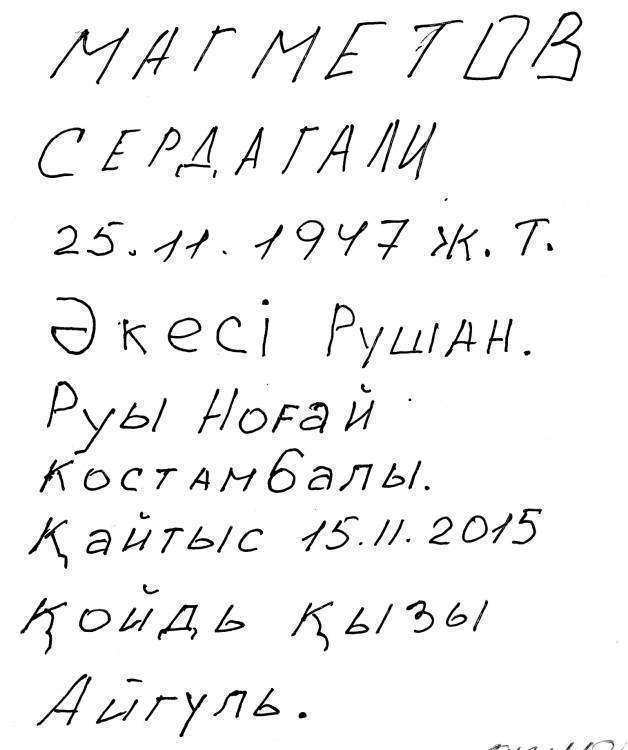 МАГМЕТОВ
СЕРДАГАЛИ
25.11.1947 ж.т.
Әкесі Рушан.
Руы Ноғай
Костамбалы.
Қайтыс 15.11.2015
Қойдь қызы
Айгуль.